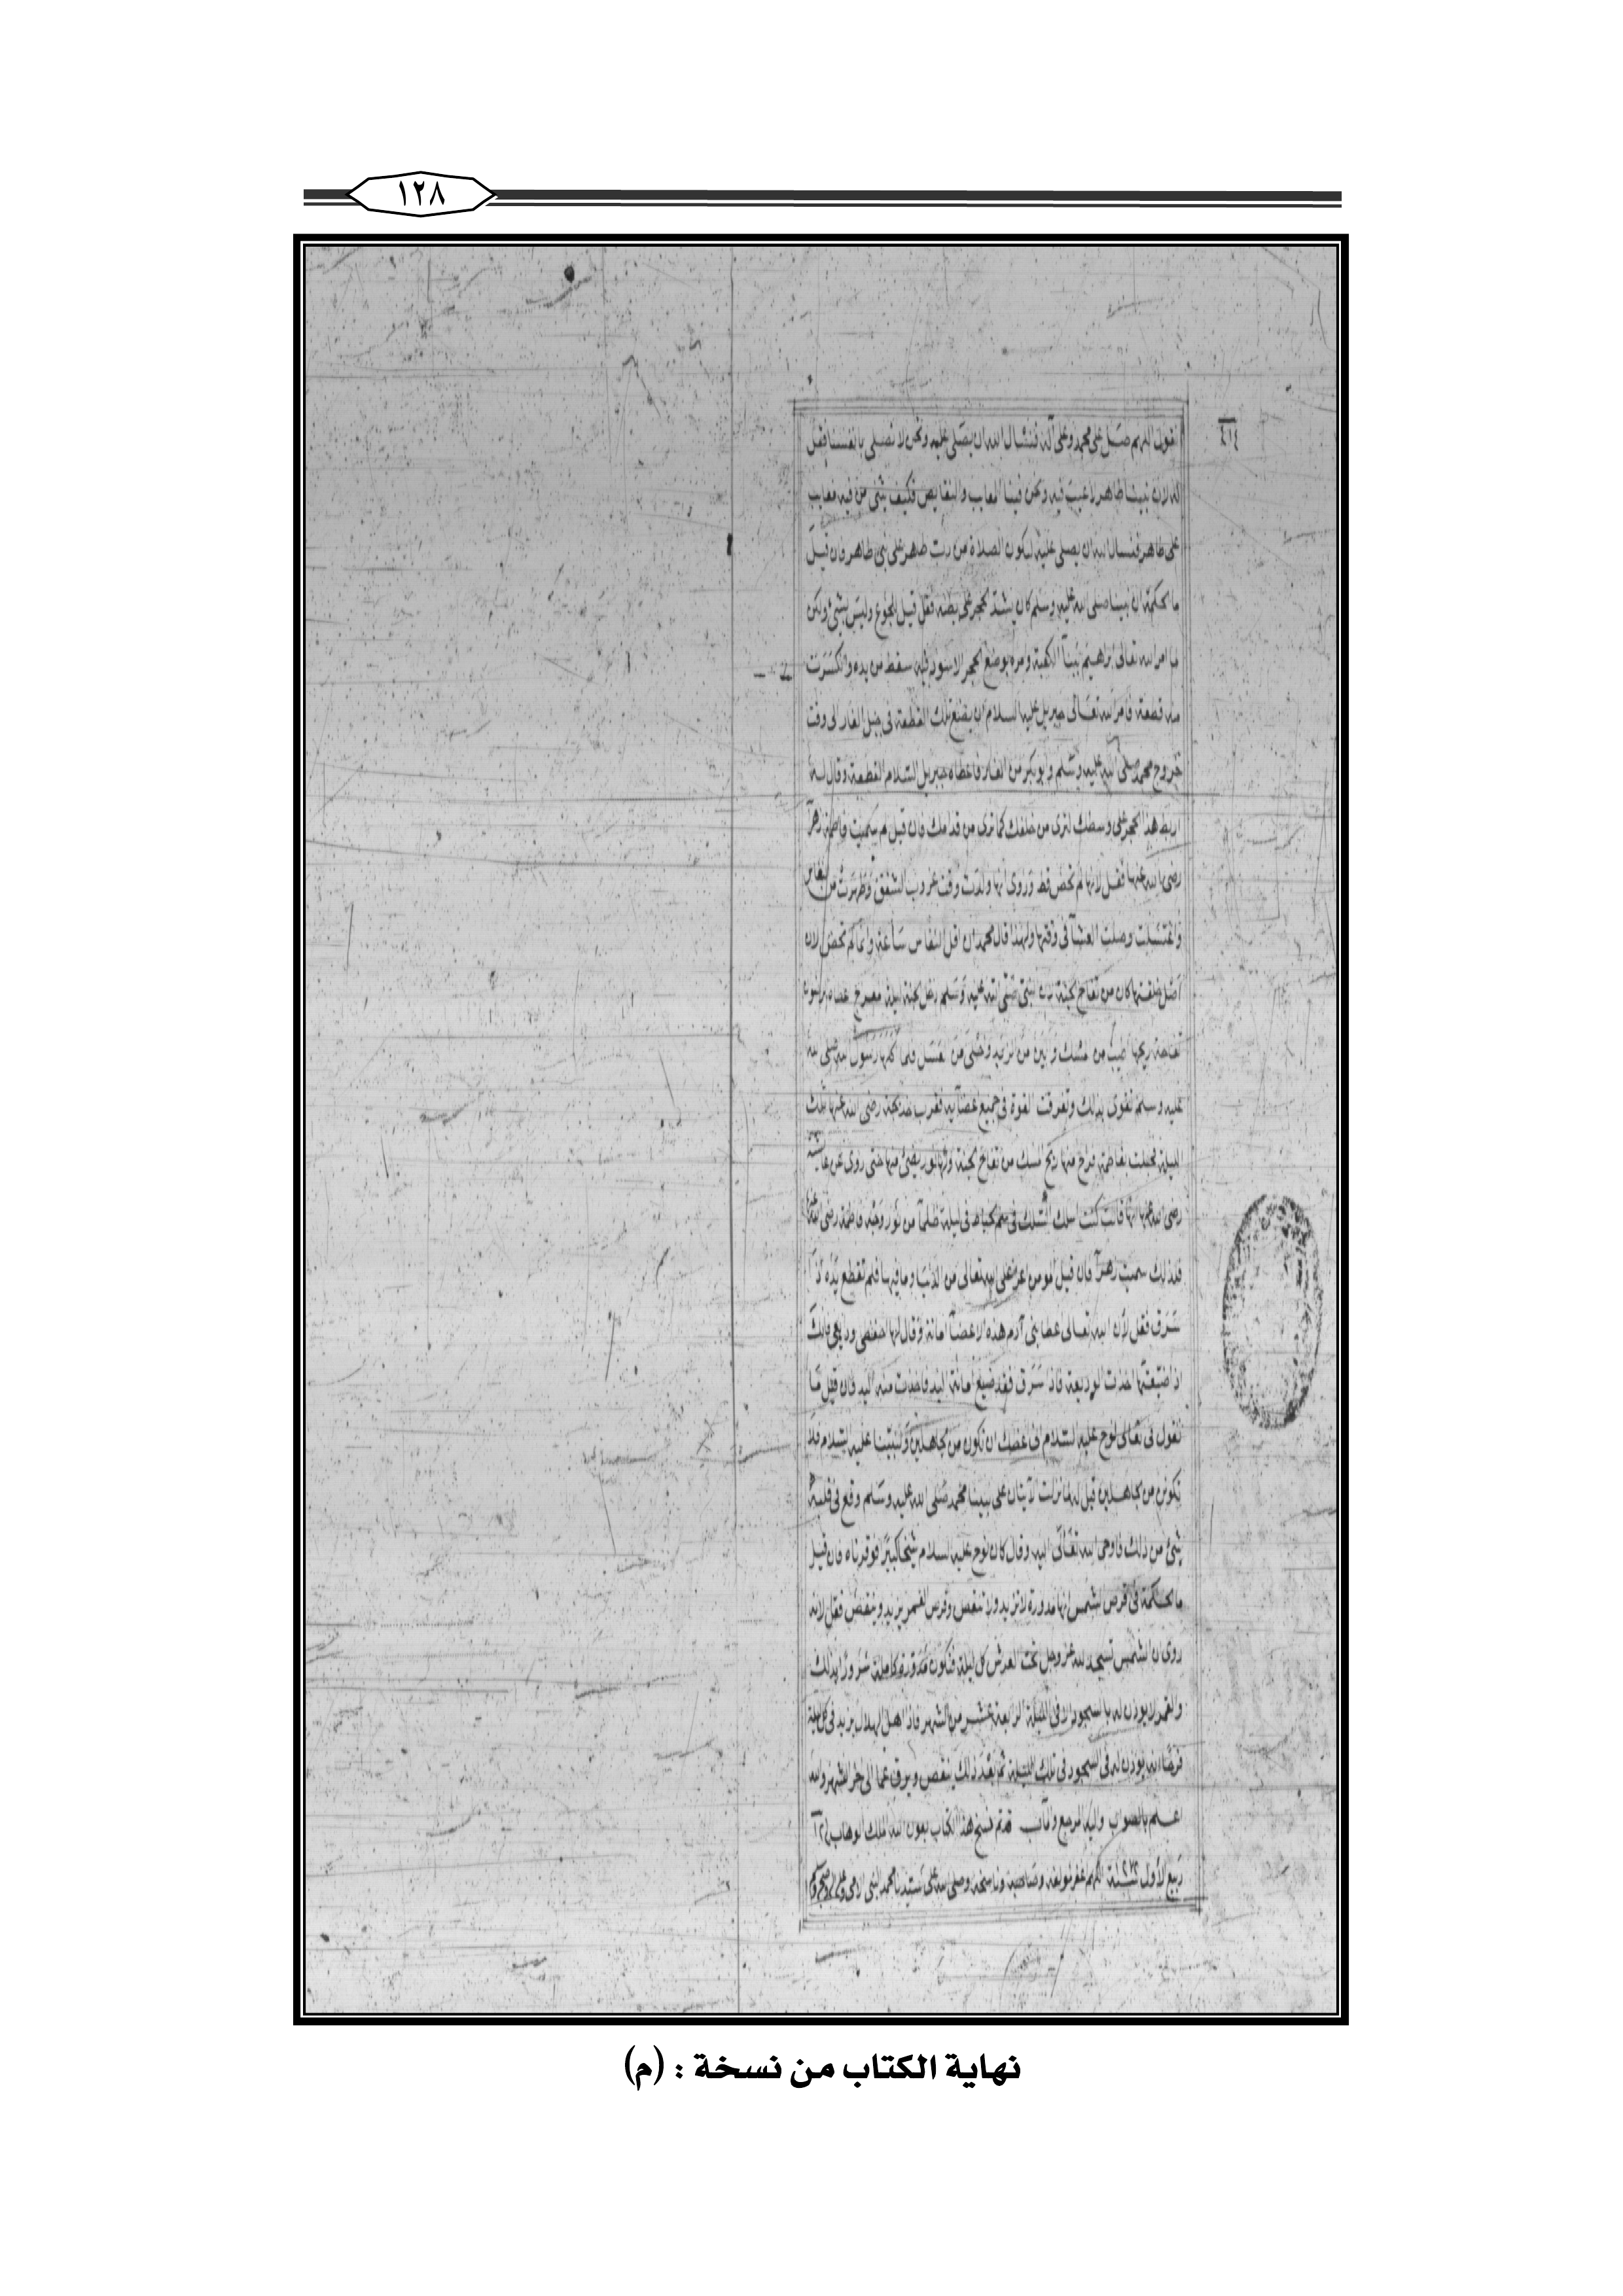 ١٢٨
٤١٤
نقول اللهم صل على محمد وعلى آله فنسأل الله ان يصلى عليه ونحن لا نصلى بانفسنا فقل
له لان نبينا طاهر لا عيب فيه ونحن فينا المعايب والنقايص فكيف يثنى من فيه معايب
على طاهر فنسال الله ان يصلى عليه لتكون الصلاة من رب طاهر على نبى طاهر فان قيل
ما الحكمة ان نبينا صلى الله عليه وسلم كان يشد الحجر على بطنه فقل قيل الجوع وليس بشئ ولكن
لما امر الله تعالى ابراهيم ببنآ الكعبة ومره بوضع الحجر الاسود فيه سقط من يده وانكسرت
منه قطعة فامر الله تعالى جبريل عليه السلام ان يضع تلك القطعة فى جبل الغار الى وقت
خروج محمد صلى الله عليه وسلم وابوبكر من الغار فاعطاه جبريل السلام القطعة وقال له
اربط هذا الحجر على وسطك لترى من خلفك كما ترى من قدامك فان قيل لم سميت فاطمة زهرآ
رضى الله عنها فقل لانها لم تحض قط وروى انها ولدت وقت غروب الشفق وطهرت من النفاس
واغتسلت وصلت العشآ فى وقتها ولهذا قال محمد ان اقل النفاس ساعة وانما لم تحض لان
اصل خلقتها كان من تفاح الجنة لان النبى صلى الله عليه وسلم دخل الجنة ليلة معرج
تفاحة ريحها اطيب من المسك والين من الزبد واحلى من العسل فلما اكلها رسول الله صلى الله
عليه وسلم تقوى بذلك وتفرقت القوة فى جميع اعضآيه فقرب خديجة رضى الله عنها تلك
الليلة فحملت بفاطمة ريح المسك من تفاح الجنة يضئ منها حتى روى عن عايشة
رضى الله عنها انها قالت كنت اسلك السلك فى سم الخياط فى ليلة ظلمآ من نور وجه فاطمة رضى الله عنها
فلذلك سميت زهرآ فان قيل المومن اعز على الله تعالى من الدنيا وما فيها فلم تقطع يده اذا
سرق فقل لأن الله تعالى اعطا بنى آدم هذه الاعضآ امانة وقال لها احفظى
اذا ضيعتها اخذت الوديعة فاذا سرق فقد ضيع امانة اليد فاخذت منه اليد فان قيل ما
نقول فى تعالى لنوح عليه السلام انى اعظك ان تكون من الجاهلين ولنبينا عليه السلام فلا
تكونن من الجاهلين قيل له لما نزلت الآيتان على نبينا محمد صلى الله عليه وسلم وقع فى قلبه
شئ من ذلك فاوحى الله تعالى اليه وقال كان نوح عليه السلام شيخا كبيرا فوقرناه فان قيل
ما الحكمة فى قرص الشمس انها مدورة لا تزيد ولا تنقص وقرص القمر يزيد وينقص فقل لانه
روى ان الشمس تسجد لله عز وجل تحت العرش كل ليلة فتكون مدورة كاملة سرورا بذلك
والقمر لا يوذن له بالسجود الا فى الليلة الرابعة عشر من الشهر فاذا اهل الهلال يزيد فى كل ليلة
فرحا انه يوذن له فى السجود فى تلك الليلة ثم بعد ذلك ينقص الى اخر الشهر والله
اعلم بالصواب واليه المرجع والمآب قد تم نسخ هذا الكتاب بعون الله الملك الوهاب
ربيع الاول اللهم اغفر لمولفه وصاحبه وناسخه وصلى الله على سيدنا محمد النبى الامى
نهاية الكتاب من نسخة : (م)